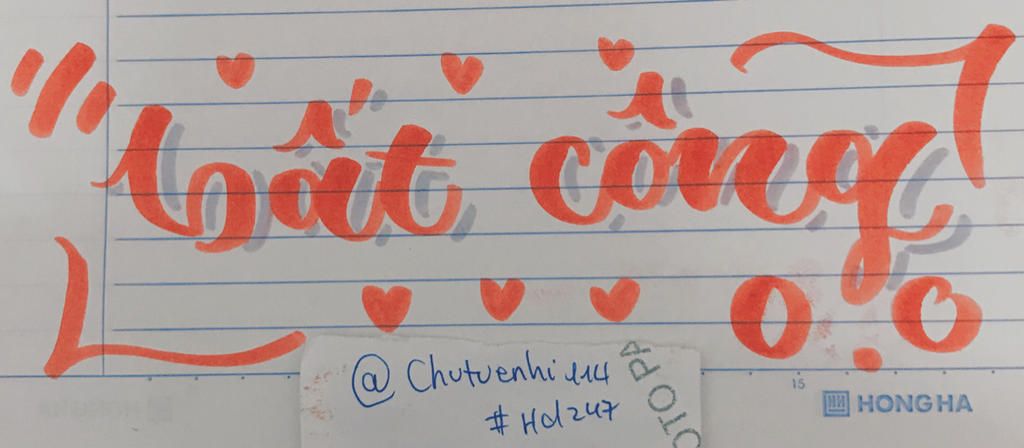 bất công
O.O
@Chutuenhi114
#Hd247
OTO PA
15
HONG HA